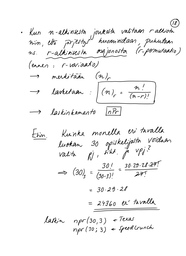 18
• Kun n-alkioisesta joukosta valitaan r alkiota
niin, että järjestys huomioidaan, puhutaan
ns. r-alkioisesta majonosta (r-permutaatio)
(ennen: r-variaatio)
→ merkitään (n)r
→ lasketaan: (n)r = n! / (n-r)!
→ laskinkomento nPr
Esim Kuinka monella eri tavalla
luokan 30 opiskelijasta voidaan
valita pj, siht. ja vpj?
→ (30)3 = 30! / (30-3)! = 30·29·28·27! / 27!
= 30·29·28
= 24360 eri tavalla
laskin npr(30,3) ← Texas
npr(30;3) ← SpeedCrunch